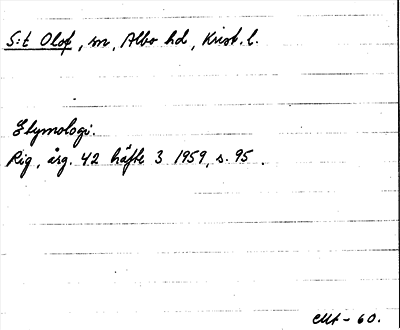 S:t Olof, sn, Albo hd, Krist. l.
Etymologi.
Rig, årg. 42 häfte 3 1959, s. 95.
-60.